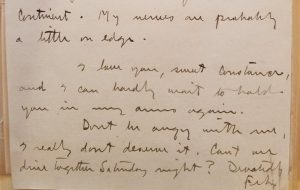 Continent. My nerves are probably
a little on edge.
I love you, sweet Constance,
and I can hardly wait to hold
you in my arms again.
Dont be angry with me,
I really dont deserve it. Cant we
dine together Saturday night? Devotedly